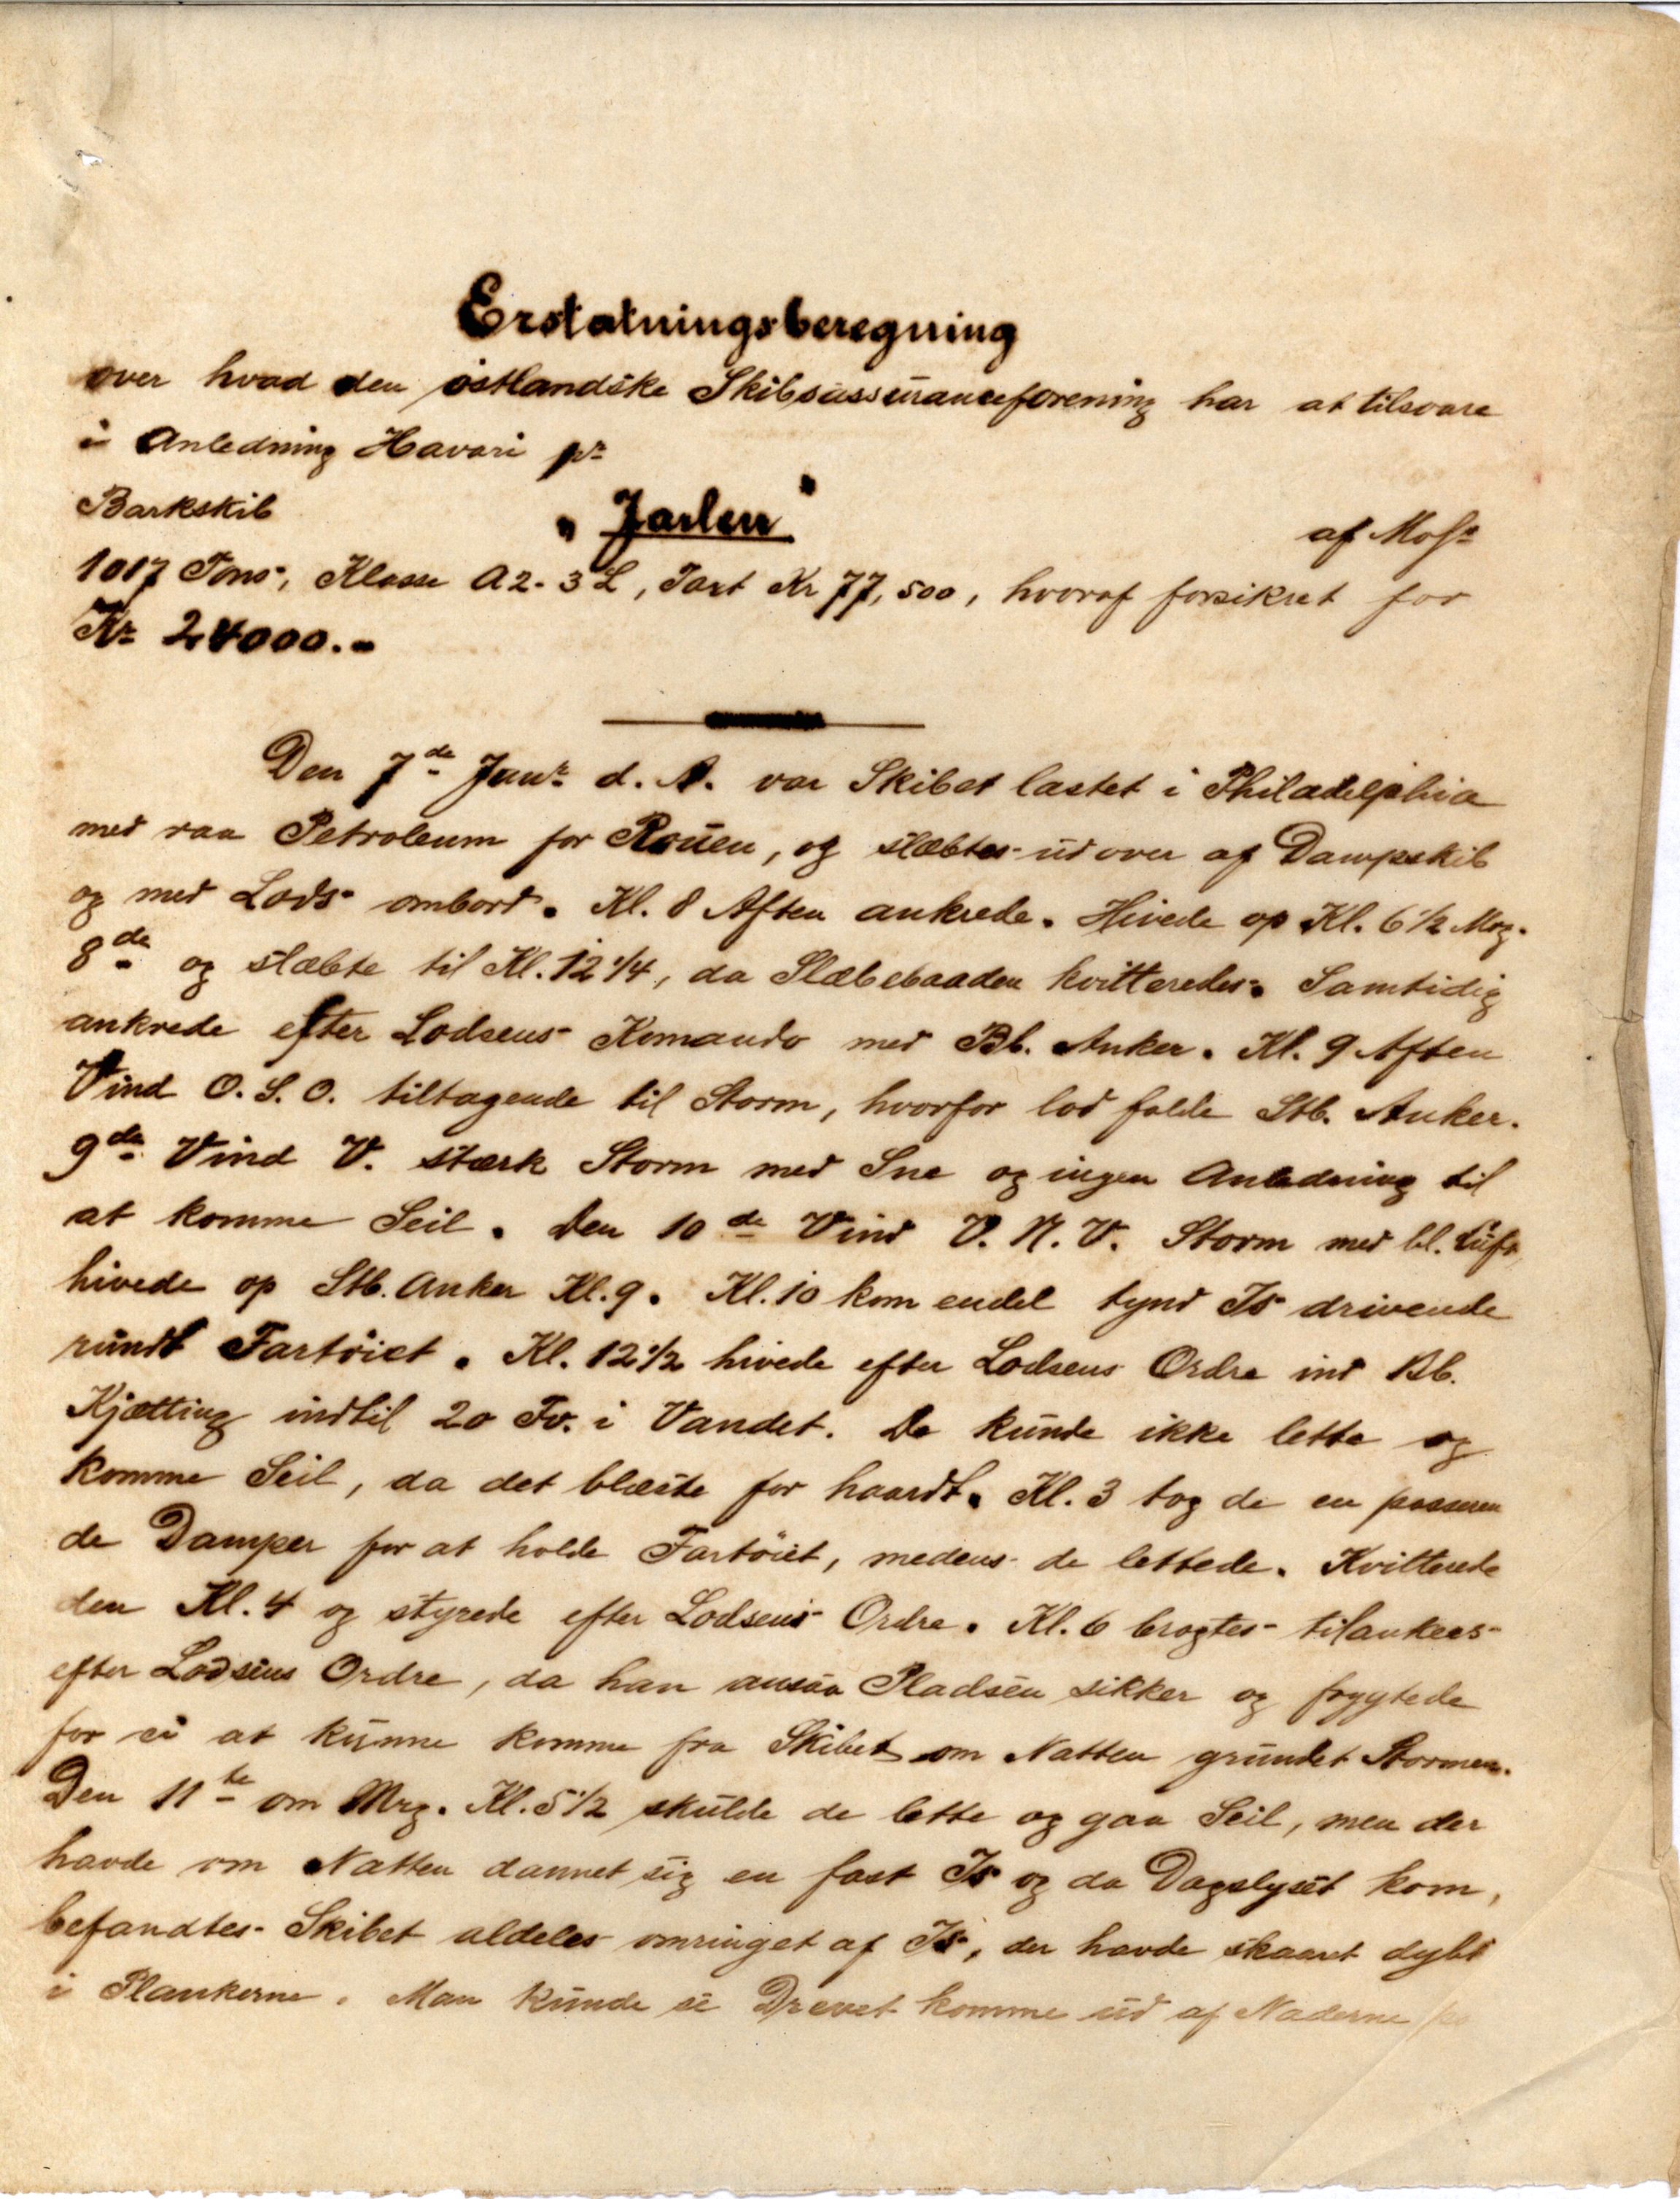 Erstatningsberegning
over hvad den østlandske Skibsassuranceforening har at tilsvare
i Anledning Havari pr
Barkskib „Jarlen" af Moss
1017 Tons, Klasse A2-3 L, Taxt Kr 77,500, hvoraf forsikret for
Kr 24000.-
Den 7de Janr d. A. var Skibet lastet i Philadelphia
med raa Petroleum for Rouen, og slæbtes ud over af Dampskib
og med Lods ombord. Kl. 8 Aften ankrede. Hivede op Kl. 6 1/2 Mrg.
8de og slæbte til Kl. 12 1/4, da Slæbebaaden kvitteredes. Samtidig
ankrede efter Lodsens Komando med Bb. Anker. Kl. 9 Aften
Vind O. S. O. tiltagende til Storm, hvorfor lod falde Stb. Anker.
9de Vind V. stærk Storm med Sne og ingen Anledning til
at komme Seil. Den 10de Vind V. N. V. Storm med bl. Luft,
hivede op Stb. Anker Kl. 9. Kl. 10 kom endel tynd Is drivende
rundt Fartøiet. Kl. 12 1/2 hivede efter Lodsens Ordre ind Bb.
Kjætting indtil 20 Fv. i Vandet. De kunde ikke lette og
komme Seil, da det blæste for haardt. Kl. 3 tog de en passeren
de Damper for at holde Fartøiet, medens de lettede. Kvitterede
den Kl. 4 og styrede efter Lodsens Ordre. Kl. 6 bragtes tilankers
efter Lodsens Ordre, da han ansaa Pladsen sikker og frygtede
for ei at kunne komme fra Skibet om Natten grundet Stormen.
Den 11te om Mrg. Kl. 5 1/2 skulde de lette og gaa Seil, men der
havde om Natten dannet sig en fast Is og da Dagslyset kom,
befandtes Skibet aldeles omringet af Is, der havde skaaret dybt
i Plankerne. Man kunde se Drevet komme ud af Naderne paa